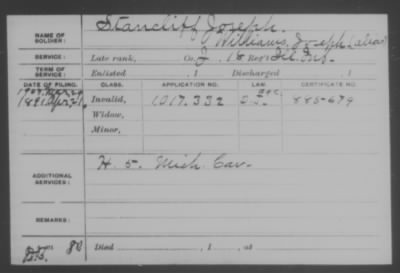 NAME OF SOLDIER: Stancliff, Joseph.
Williams, Joseph (alias)
SERVICE: Late rank, Co. I, 18 Reg't Ill. Inf.
TERM OF SERVICE: Enlisted , 1 Discharged , 1
DATE OF FILING. CLASS. APPLICATION NO. LAW. CERTIFICATE NO.
1891 Apr 21, Invalid, 1.017.332 885679
Widow,
Minor,
ADDITIONAL SERVICES: H. 5. Mich. Cav.
REMARKS:
Died , 1 , at